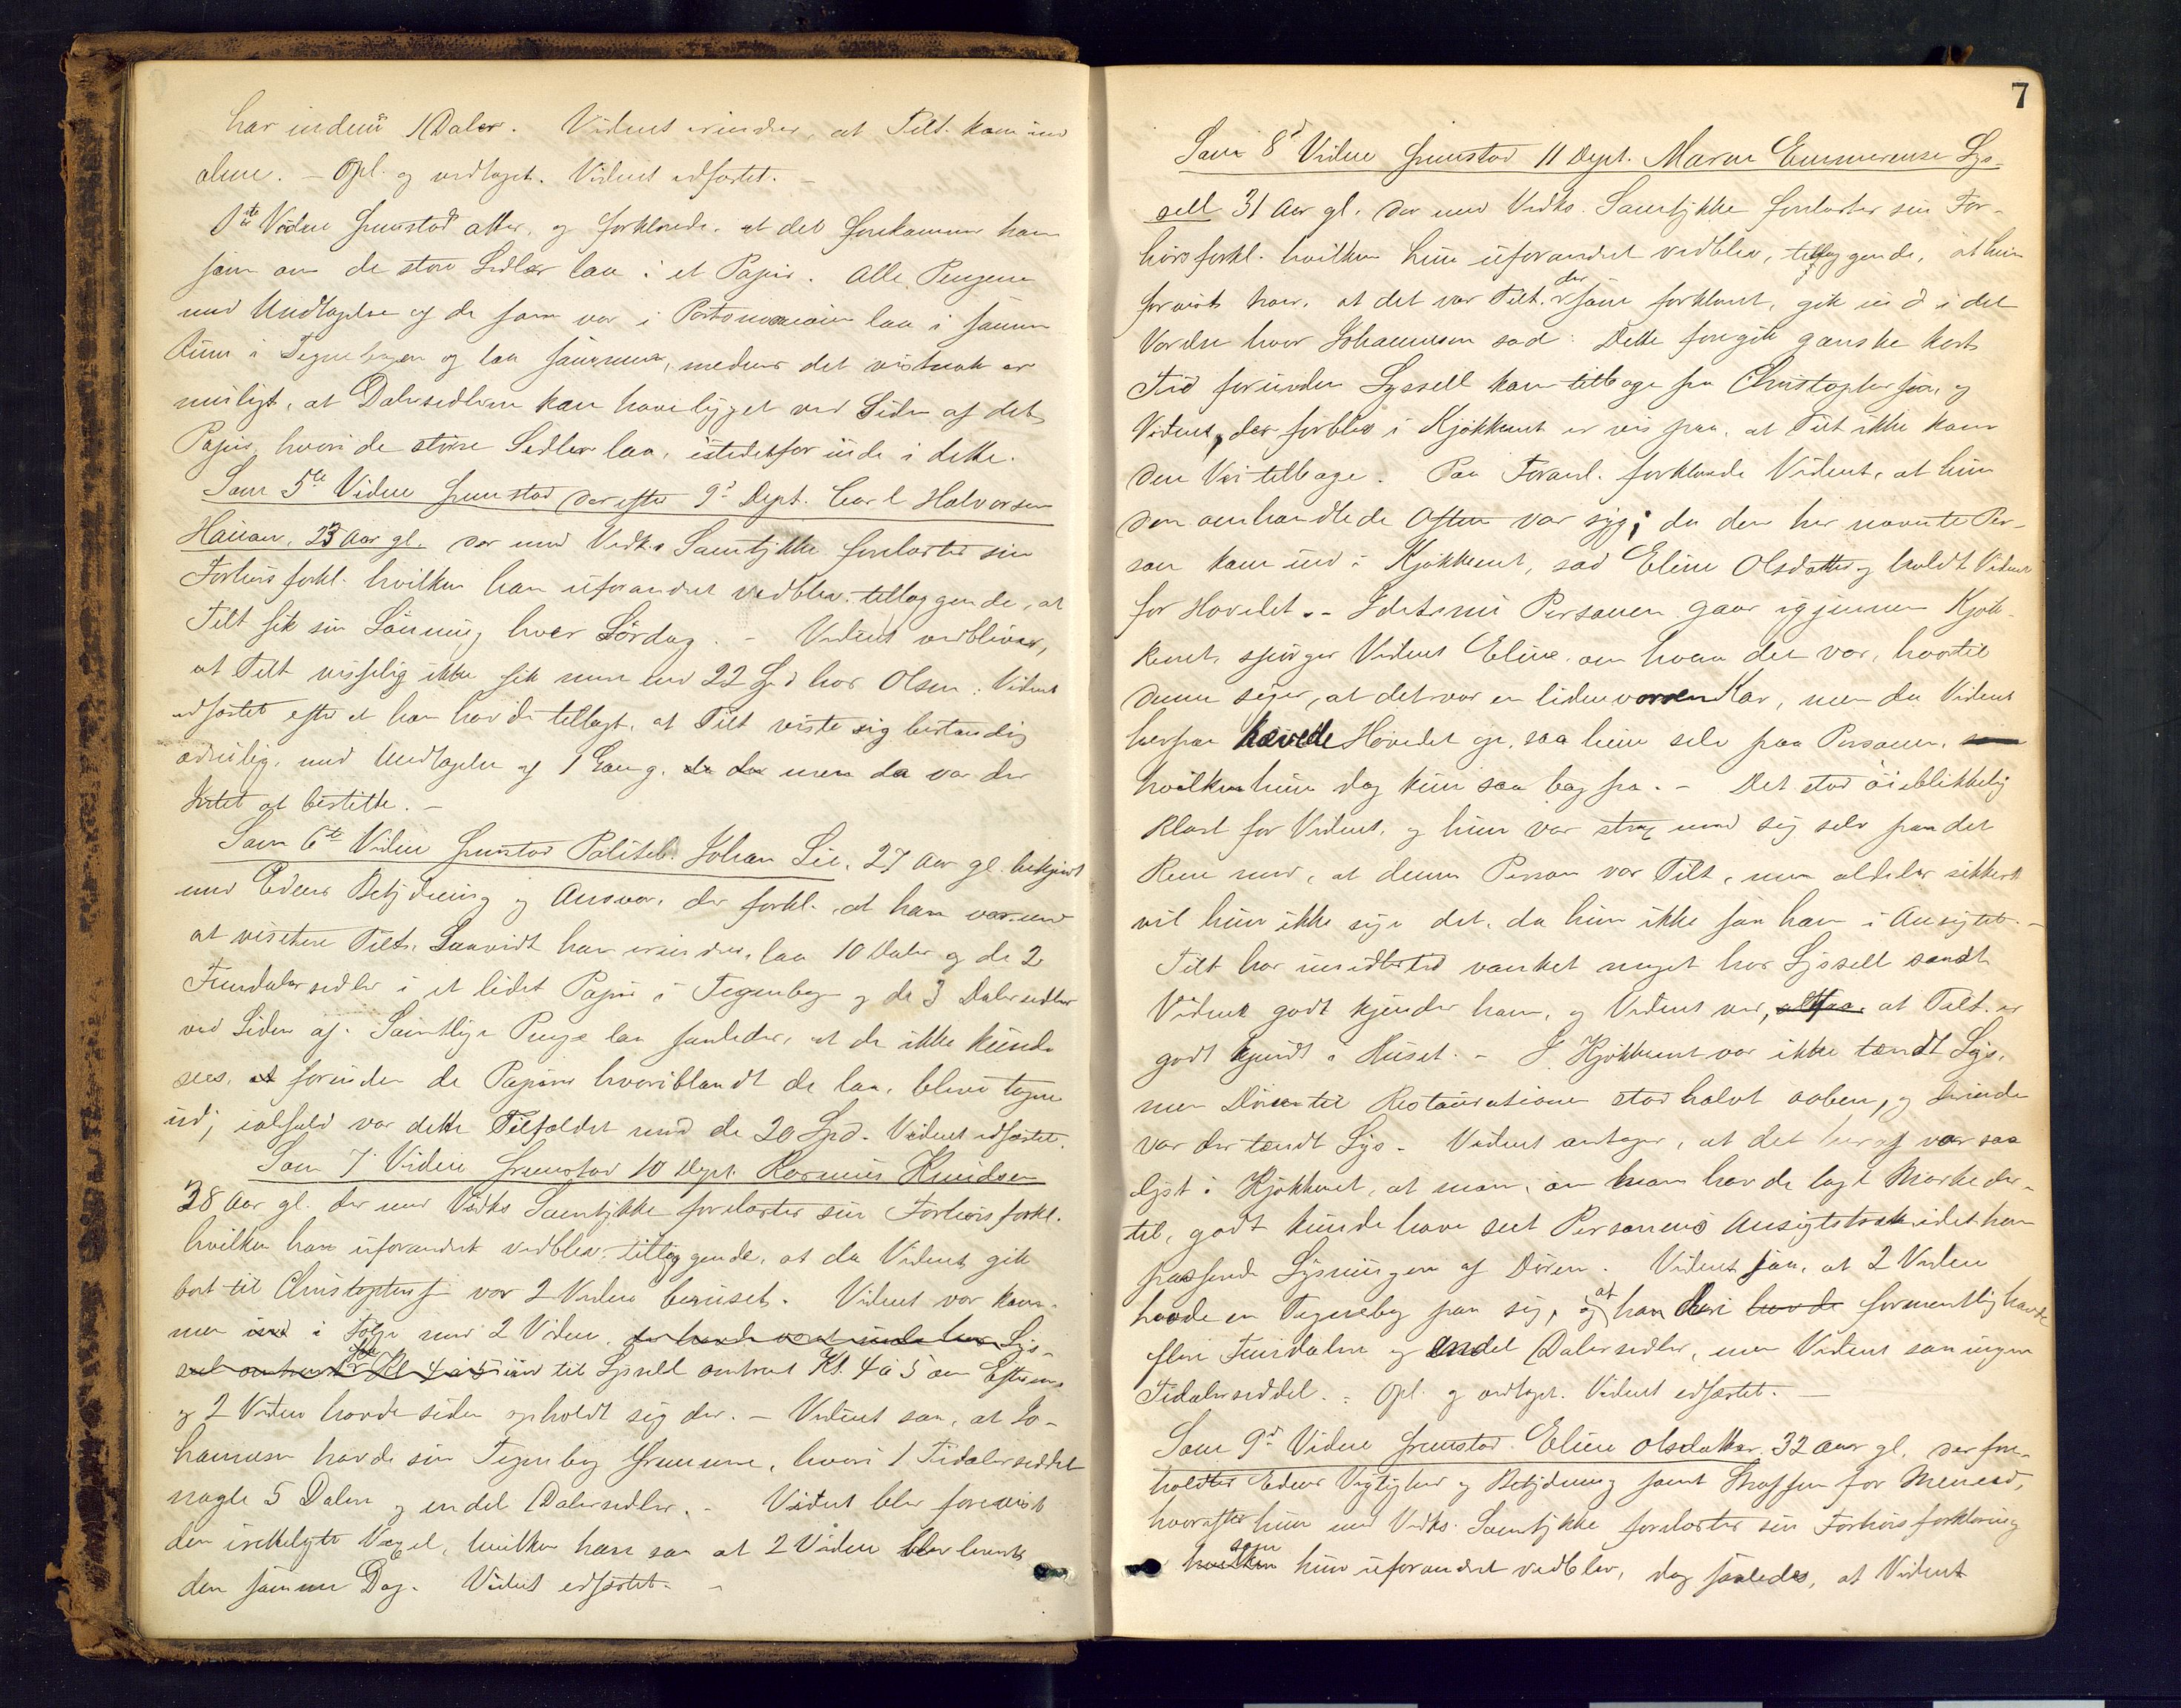 har endnu 1 Daler. Vidnet erindrer, at Tilt. kom ind
alene. – Opl. og vedtaget. Vidnet edfæstet. –
1ste Vidne fremstod atter, og forklarede, at det forekommer ham
som om de store Sedler laa i et Papir. Alle Pengene
med Undtagelse af de som var i Portemonaien laa i samme
Rum i Tegnebogen og laa sammen, medens det vistnok er
muligt, at Dalersedlerne kan have ligget ved Siden af det
Papir, hvori de större Sedler laa, istedetfor inde i dette.
Som 5te Vidne fremstod derefter 9d Dept. Carl Halvorsen
23 Aar gl. der med Vedk.s Samtykke forelæstes sin
Forhörsforkl. hvilken han uforandret vedblev, tillæggende, at
Tilt fik sin Lönning hver Lördag. – Vidnet vedbliver,
at Tilt visselig ikke fik mere end 22 Spd hos Olsen. Vidnet
edfæstet efter at han havde tillagt, at Tilt viste sig bestandig
ædruelig, med Undtagelse af 1 Gang, da der men da var der
Intet at bestille. –
Som 6te Vidne fremstod Politeb. Johan Lie, 27 Aar gl. bekjendt
med Edens Betydning og Ansvar, der forkl. at han var med
at visitere Tilt. Saavidt han erindrer, laa 10 Daler og de 2
Femdalersedler i et lidet Papir i Tegnebogen og de 3 Dalersedler
ved Siden af. Samtlige Penge laa saaledes, at de ikke kunde
sees, at forinden de Papirer hvoriblandt de laa, bleve tagne
ud; ialfald var dette Tilfældet med de 20 Spd. Vidnet edfæstet.
Som 7d Vidne fremstod 10 Dept. Rasmus Knudsen
38 Aar gl. der med Vedks Samtykke forelæstes sin Forhörsforkl.
hvilken han uforandret vedblev, tillæggende, at da Vidnet gik
bort til Christophersen var 2 Vidne beruset. Vidnet var kom-
men ind i Fölge med 2 Vidne, der havde været inde hos Lys-
sel omtrent Kl 4 à 5 ind til Lyssell omtrent Kl. 4 à 5 om Efterm.
og 2 Vidne havde siden opholdt sig der. – Vidnet saa, at Jo-
hannesen havde sin Tegnebog fremme, hvori 1 Tidalerseddel
nogle 5 Daler og endel Dalersedler. – Vidnet blev forevist
den irettelagte Vexel, hvilken han saa at 2 Vidne blev leveret
den samme Dag. Vidnet edfæstet. –
7
Som 8d Vidne fremstod 11 Dept. Maren Emmerense Lys-
sell 31 Aar gl. der med Vedks. Samtykke forelæstes sin For-
hörsforkl. hvilken hun uforandret vedblev, tillæggende, at hun
forvist tror, at det var Tilt. der som forklaret, gik ind i det
Værelse hvor Johannesen sad. Dette foregik ganske kort
Tid forinden Lyssell kom tilbage fra Christophersen, og
Vidnet, der forblev i Kjökkenet er vis paa, at Tilt ikke kom
den Vei tilbage. Paa Foranl. forklarede Vidnet, at hun
den omhandlede Aften var syg; da den her nævnte Per-
son kom ind i Kjökkenet, sad Eline Olsdatter og holdt Vidnet
for Hovedet. – Idetsamme Personen gaar igjennem Kjök-
kenet, spörger Vidnet Eline, om hvem det var, hvortil
denne siger, at det var en liden voxen Kar, men da Vidnet
herpaa hævede Hovedet op, saa hun selv paa Personen, som
hvilken hun dog kun saa bag fra. – Det stod öieblikkelig
klart for Vidnet, og hun var strax med sig selv paa det
Rene med, at denne Person var Tilt, men aldeles sikkert
vil hun ikke sige det, da hun ikke saa ham i Ansigtet. –
Tilt har imidlertid vanket meget hos Lyssell samt
Vidnet godt kjender ham, og Vidnet ved, altsaa at Tilt. er
godt kjendt i Huset. – I Kjökkenet var ikke tændt Lys,
men Dören til Restaurationen stod halvt aaben, og derinde
var der tændt Lys. – Vidnet antager, at det heraf var saa
lyst i Kjökkenet, at man, om man havde lagt Mærke der-
til, godt kunde have seet Personens Ansigtstræk idet han
passerede Lysningen af Dören. Vidnet saa, at 2 Vidne
havde en Tegnebog paa sig, og at han deri havde formentlig havde
flere Femdalere og endel Dalersedler, men Vidnet saa ingen
Tidalerseddel. – Opl. og vedtaget. Vidnet edfæstet. –
Som 9d Vidne fremstod Eline Olsdatter, 32 Aar gl. der fore-
holdtes Edens Vigtighed og Betydning samt Straffen for Meneed,
hvorefter hun med Vedks. Samtykke forelæstes sin Forhörsforklaring
hvilken som hun uforandret vedblev, dog saaledes, at Vidnet